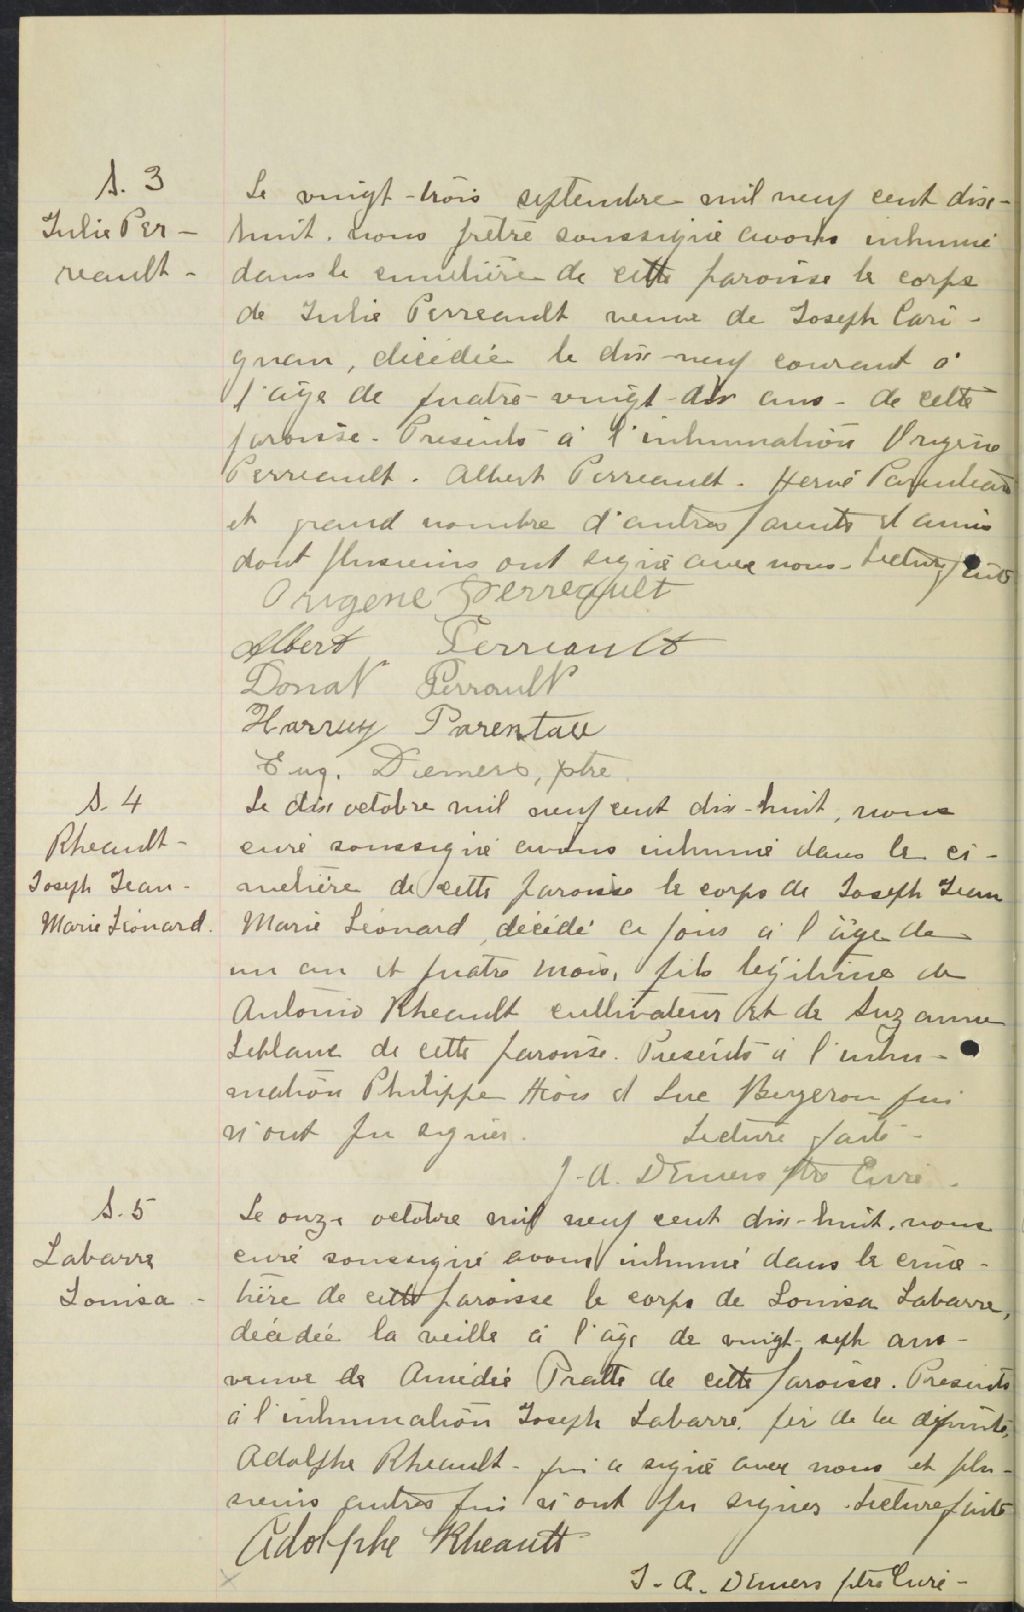 S. 3
Julie Per-
reault -
Le vingt-trois septembre mil neuf cent dix-
huit, nous prêtre soussigné avons inhumé
dans le cimetière de cette paroisse le corps
de Julie Perreault veuve de Joseph Cari-
gnan, décédée le dix-neuf courant à
l'âge de quatre-vingt-dix ans - de cette
paroisse. Présents à l'inhumation Origène
Perreault. Albert Perreault. Hervé Parenteau
et grand nombre d'autres parents et amis
dont plusieurs ont signé avec nous - Lecture faite
Origene Perreault
Albert Perreault
Donat Perrault
Harruy Parentau
Eug. Demers, ptre
S. 4
Rheault -
Joseph Jean -
Marie Léonard.
Le dix octobre mil neuf cent dix-huit, nous
curé soussigné avons inhumé dans le ci-
metière de cette paroisse le corps de Joseph Jean
Marie Léonard, décédé ce jour à l'âge de
un an et quatre mois, fils légitime de
Antonio Rheault cultivateur et de Suzanne
Leblanc de cette paroisse. Présents à l'inhu-
mation Philippe et Luc Bergeron qui
n'ont pu signer. Lecture faite -
J. A. Demers ptre Curé -
S. 5
Labarre
Louisa -
Le onze octobre mil neuf cent dix-huit, nous
curé soussigné avons inhumé dans le cime-
tière de cette paroisse le corps de Louisa Labarre,
décédée la veille à l'âge de vingt-sept ans -
veuve de Amédée Pratte de cette paroisse. Présents
à l'inhumation Joseph Labarre, de la défunte,
Adolphe Rheault - qui a signé avec nous et plu-
sieurs autres qui n'ont pu signer. Lecture faite
Adolphe Rheault
J. A. Demers ptre Curé -